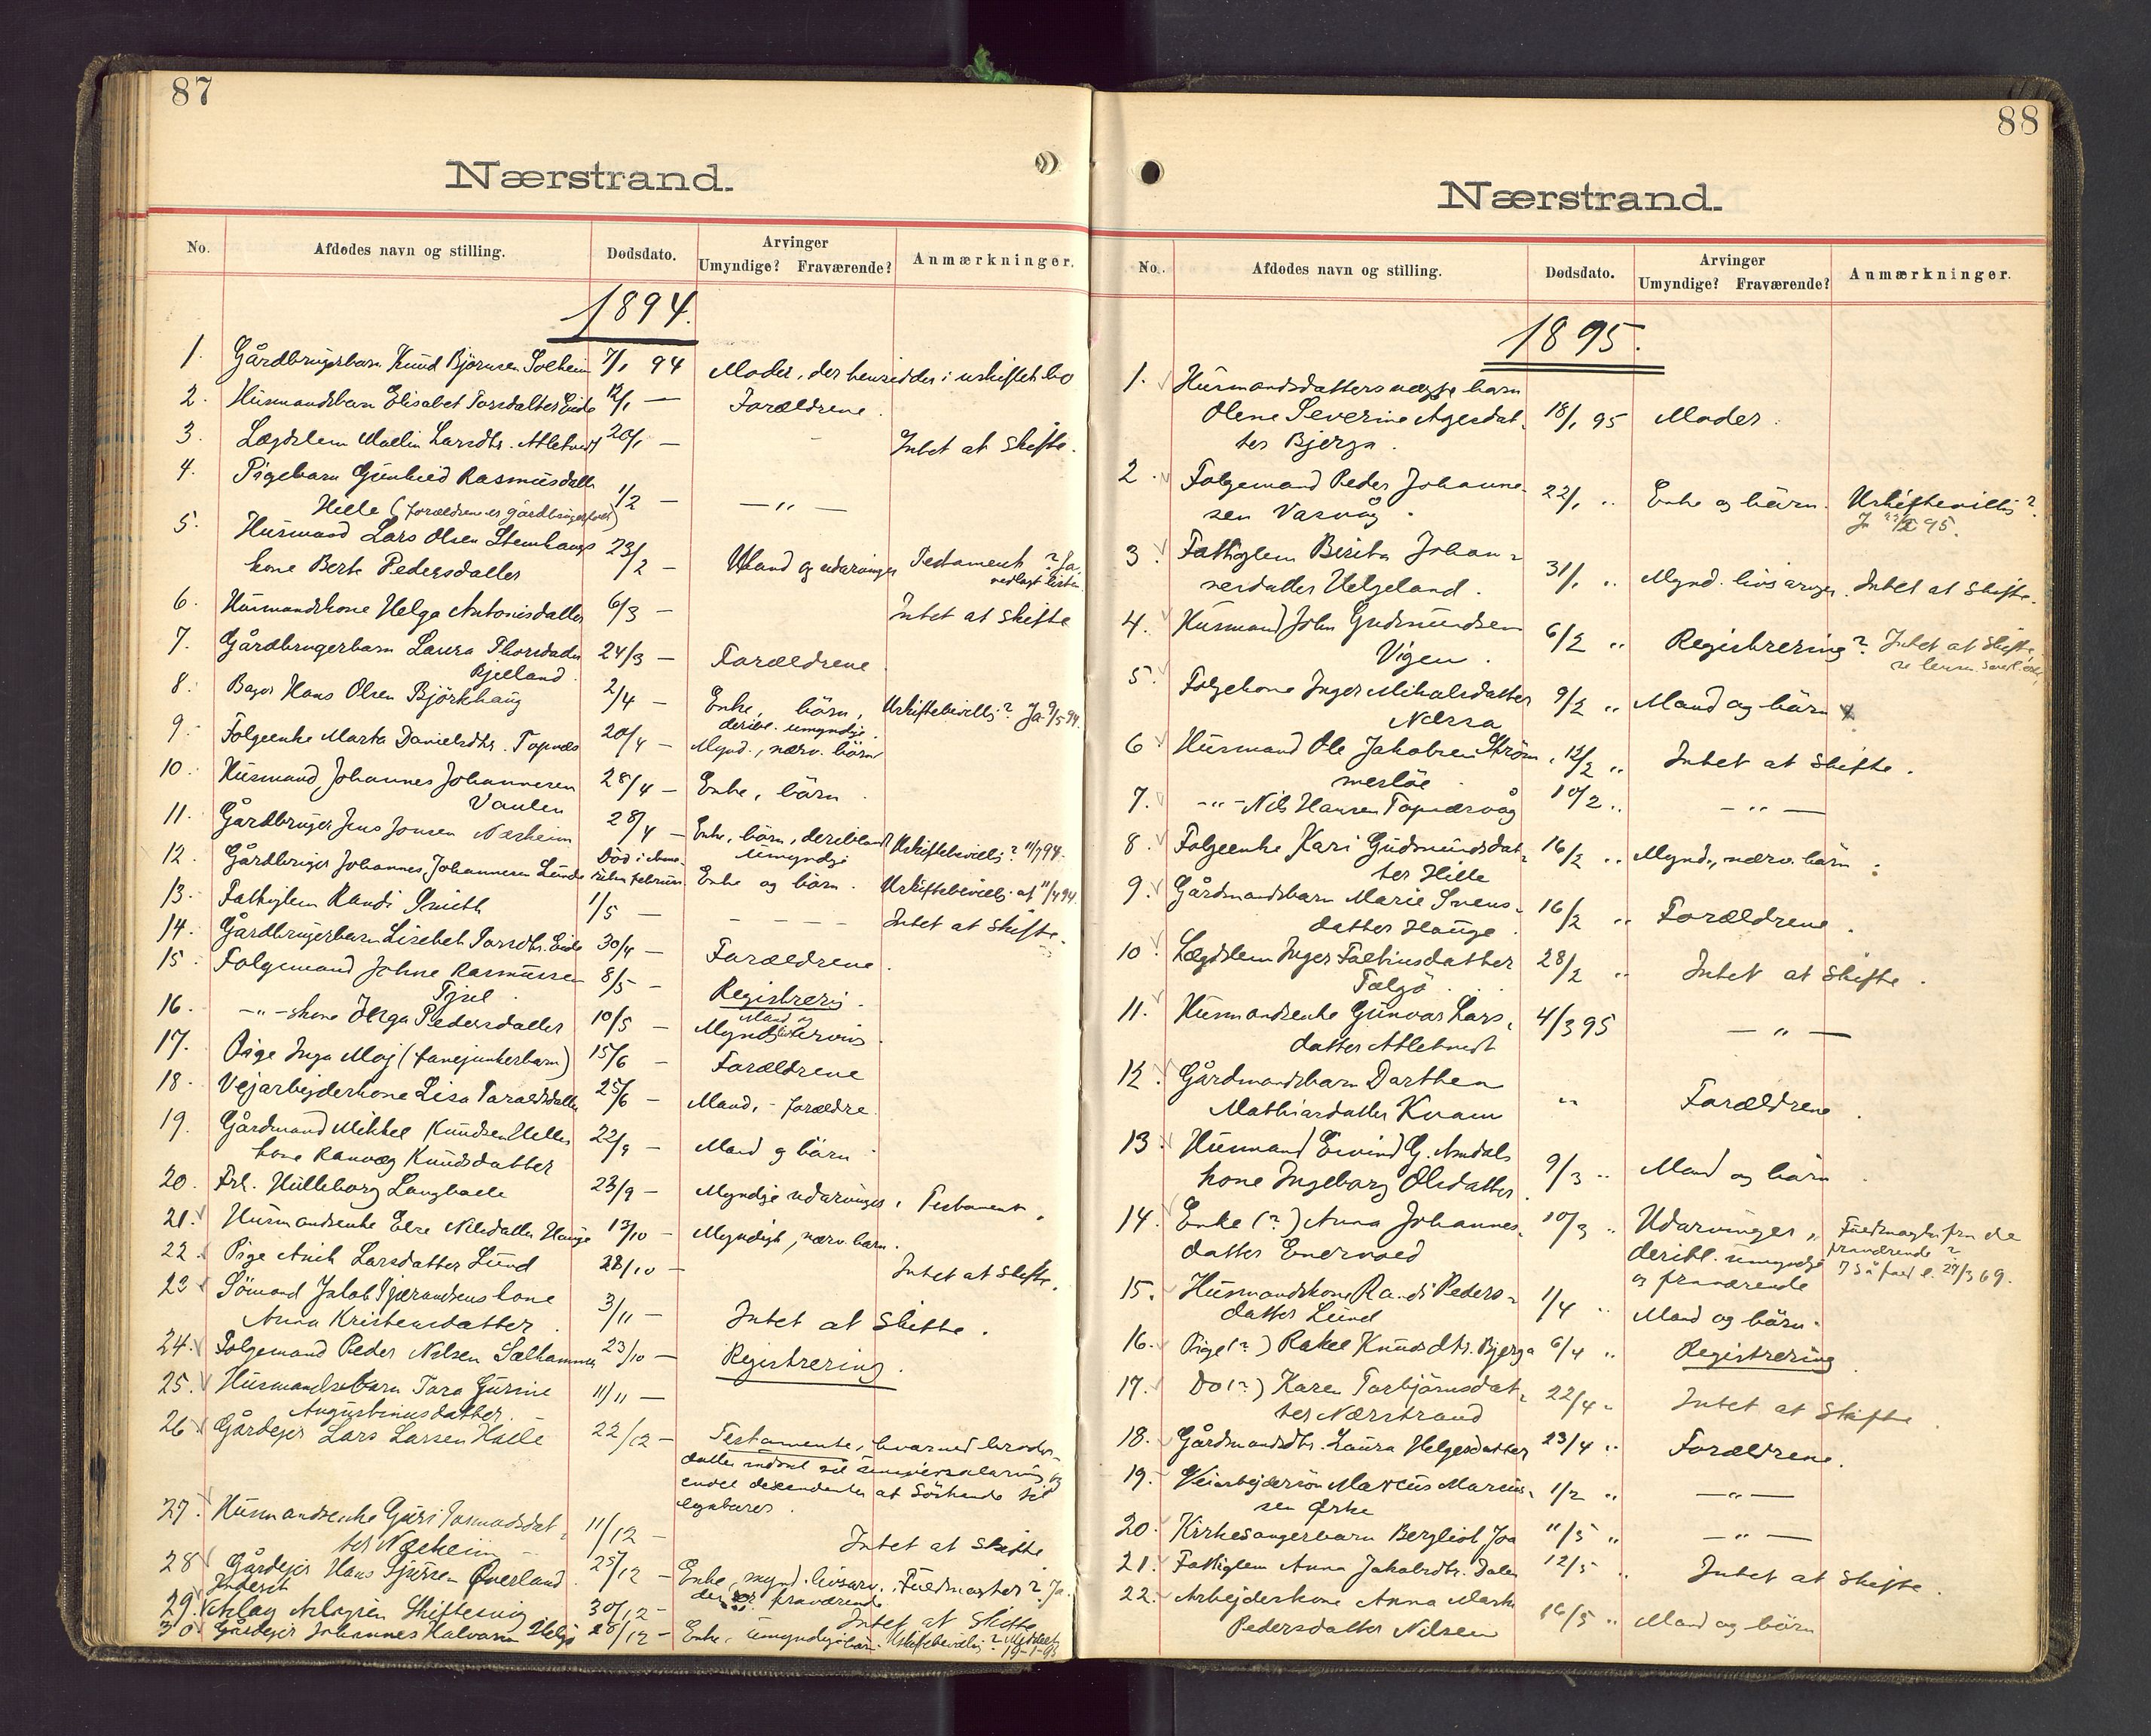 87
Nærstrand.
No. Afdødes navn og stilling. Dødsdato. Arvinger Umyndige? Fraværende? Anmærkninger.
1894.
1. Gårdbrugerbarn Knud Bjørnsen Solheim 7/1 94 Moder, der hensidder i uskiftet bo
2. Husmandsbarn Elisabet Torsdatter Eide 12/1 — Forældrene.
3. Lægdslem Malin Larsdtr. 20/1 — Intet at skifte.
4. Pigebarn Gunhild Rasmusdatter
Hille (forældrene er gårdbrugerfolk) 1/2 — — „ —
5. Husmand Lars Olsen Stenhaugs
kone Berte Pedersdatter 23/2 — Mand og udarvinger Testament? Ja,
vedlagt listen
6. Husmandskone Helga Antonisdatter 6/3 — Intet at skifte
7. Gårdbrugerbarn Laura Thorsdatter 24/3 — Forældrene
Bjelland.
8. Bager Hans Olsen Björkhaug 2/4 — Enke, börn, Uskiftebevillg? Ja 9/5 94.
deribl. umyndige.
9. Folgeenke Marta Danielsdtr. Topnæs 20/4 — Mynd., nærv. börn
10. Husmand Johannes Johannesen 28/4 — Enke, börn.
Vaulen
11. Gårdbruger Jens Jonsen Næsheim 28/4 — Enke, börn, deriblandt Uskiftebevillg? 11/7 94.
umyndige
12. Gårdbruger Johannes Johannesen Lunde Död i Ame-
rika februar Enke og börn. Uskiftebevillg. af 11/4 94
13. Fattiglem Randi Smith 1/5 — - - - - Intet at skifte.
14. Gårdbrugerbarn Lisebet Torsdtr. Eide 30/4 — Forældrene.
15. Folgemand Johne Rasmussen 8/5 — Registrering.
Tysel.
16. — „ — skone Helga Pedersdatter 10/5 — Mand og
Mynd. livsarving.
17. Pige Inga Moj (fanejunkerbarn) 15/6 — Forældrene
18. Vejarbejderkone Lisa Taraldsdatter 25/6 — Mand, - forældre.
19. Gårdmand Mikkel Knudsen Hilles
kone Ranvæg Knudsdatter 22/9 — Mand og börn.
20. Frk. Hilleborg Langballe 23/9 — Myndige udarvinger. Testament.
21. Husmandsenke Else Nilsdatter Hauge 13/10 — Myndigt, nærv. barn.
22. Pige Anik Larsdatter Lund 28/10 — Intet at skifte.
23. Sömand Jakob Tjærandsens kone
Anna Kristensdatter. 3/11 — Intet at skifte.
24. Folgemand Peder Nilsen Sælhammer 23/10 — Registrering.
25. Husmandsbarn Tara Gurine 11/11 —
Augustinusdatter.
26. Gårdejer Lars Larsen Hille 22/12 — Testamente, hvorved broder-
datter indsat til universalarving og
endel descendenter af söskende til
legatarer.
27. Husmandsenke Guri Tormodsdat-
ter Næsheim 11/12 — Intet at skifte
28. Gårdejer Hans Sjursen Överland. 25/12 — Enke, mynd. livsarv. Fuldmagter? Ja.
Inderst der er fraværende
29. Aslag Aslagsen Skiftesvig 30/12 — Intet at skifte
30. Gårdejer Johannes Halvorsen Helgö 28/12 — Enke, umyndige börn. Uskiftebevillg? Meddelt
19-1-95
88
Nærstrand.
No. Afdødes navn og stilling. Dødsdato. Arvinger Umyndige? Fraværende? Anmærkninger.
1895.
1. Husmandsdatters uægte barn
Olene Severine Agesdat-
ter Bjerga. 18/1 95 Moder.
2. Folgemand Peder Johanne-
sen Vasvåg. 22/1 „ Enke og börn. Uskiftebevillg?
Ja 95.
3. Fattiglem Birita Johan-
nesdatter Helgeland. 31/1 „ Mynd. livsarvger. Intet at skifte.
4. Husmand John Gudmundsen
Vigen. 6/2 „ Registrering? Intet at skifte,
5. Folgekone Inger Mikalsdatter 9/2 „ Mand og börn
Nærsa
6. Husmand Ole Jakobsen Ström- 12/2 „ Intet at skifte.
meslöe.
7. — „ — Nils Hansen Topnæsvåg 10/2 „ — „ —
8. Folgeenke Kari Gudmundsdat-
ter Hille 16/2 „ Mynd., nærv. börn.
9. Gårdmandsbarn Marie Svens-
datter Hauge. 16/2 „ Forældrene.
10. Lægdslem Inger Faltinsdatter 28/2 „ Intet at skifte.
Talgö.
11. Husmandsenke Gunvor Lars-
datter 4/3 95 — „ —
12. Gårdmandsbarn Dorthea
Mathiasdatter Kvam „ Forældrene.
13. Husmand Eivind G. Amdals
kone Ingeborg Olsdatter. 9/3 „ Mand og börn.
14. Enke (?) Anna Johannes-
datter Enervold 10/3 „ Udarvinger, Fuldmagter fra de
deribl. umyndige fraværende?
og fraværende
15. Husmandskone Randi Peders-
datter Lund 1/4 „ Mand og börn.
16. Pige (?) Rakel Knudsdtr. Bjerga 6/4 „ Registrering.
17. Do (?) Karen Torbjörnsdat-
ter Nærstrand 22/4 „ Intet at skifte.
18. Gårdmandsdtr. Laura Helgesdatter 23/4 „ Forældrene.
19. Veiarbejdersön Marcus Marius-
sen Ørke 1/2 „ — „ —
20. Kirkesangerbarn Bergliot Joa 11/5 „ — „ —
21. Fattiglem Anna Jakobsdtr. Dalen 12/5 „ Intet at skifte.
22. Arbejderkone Anna Marta
Pedersdatter Nilsen 16/5 „ Mand og börn